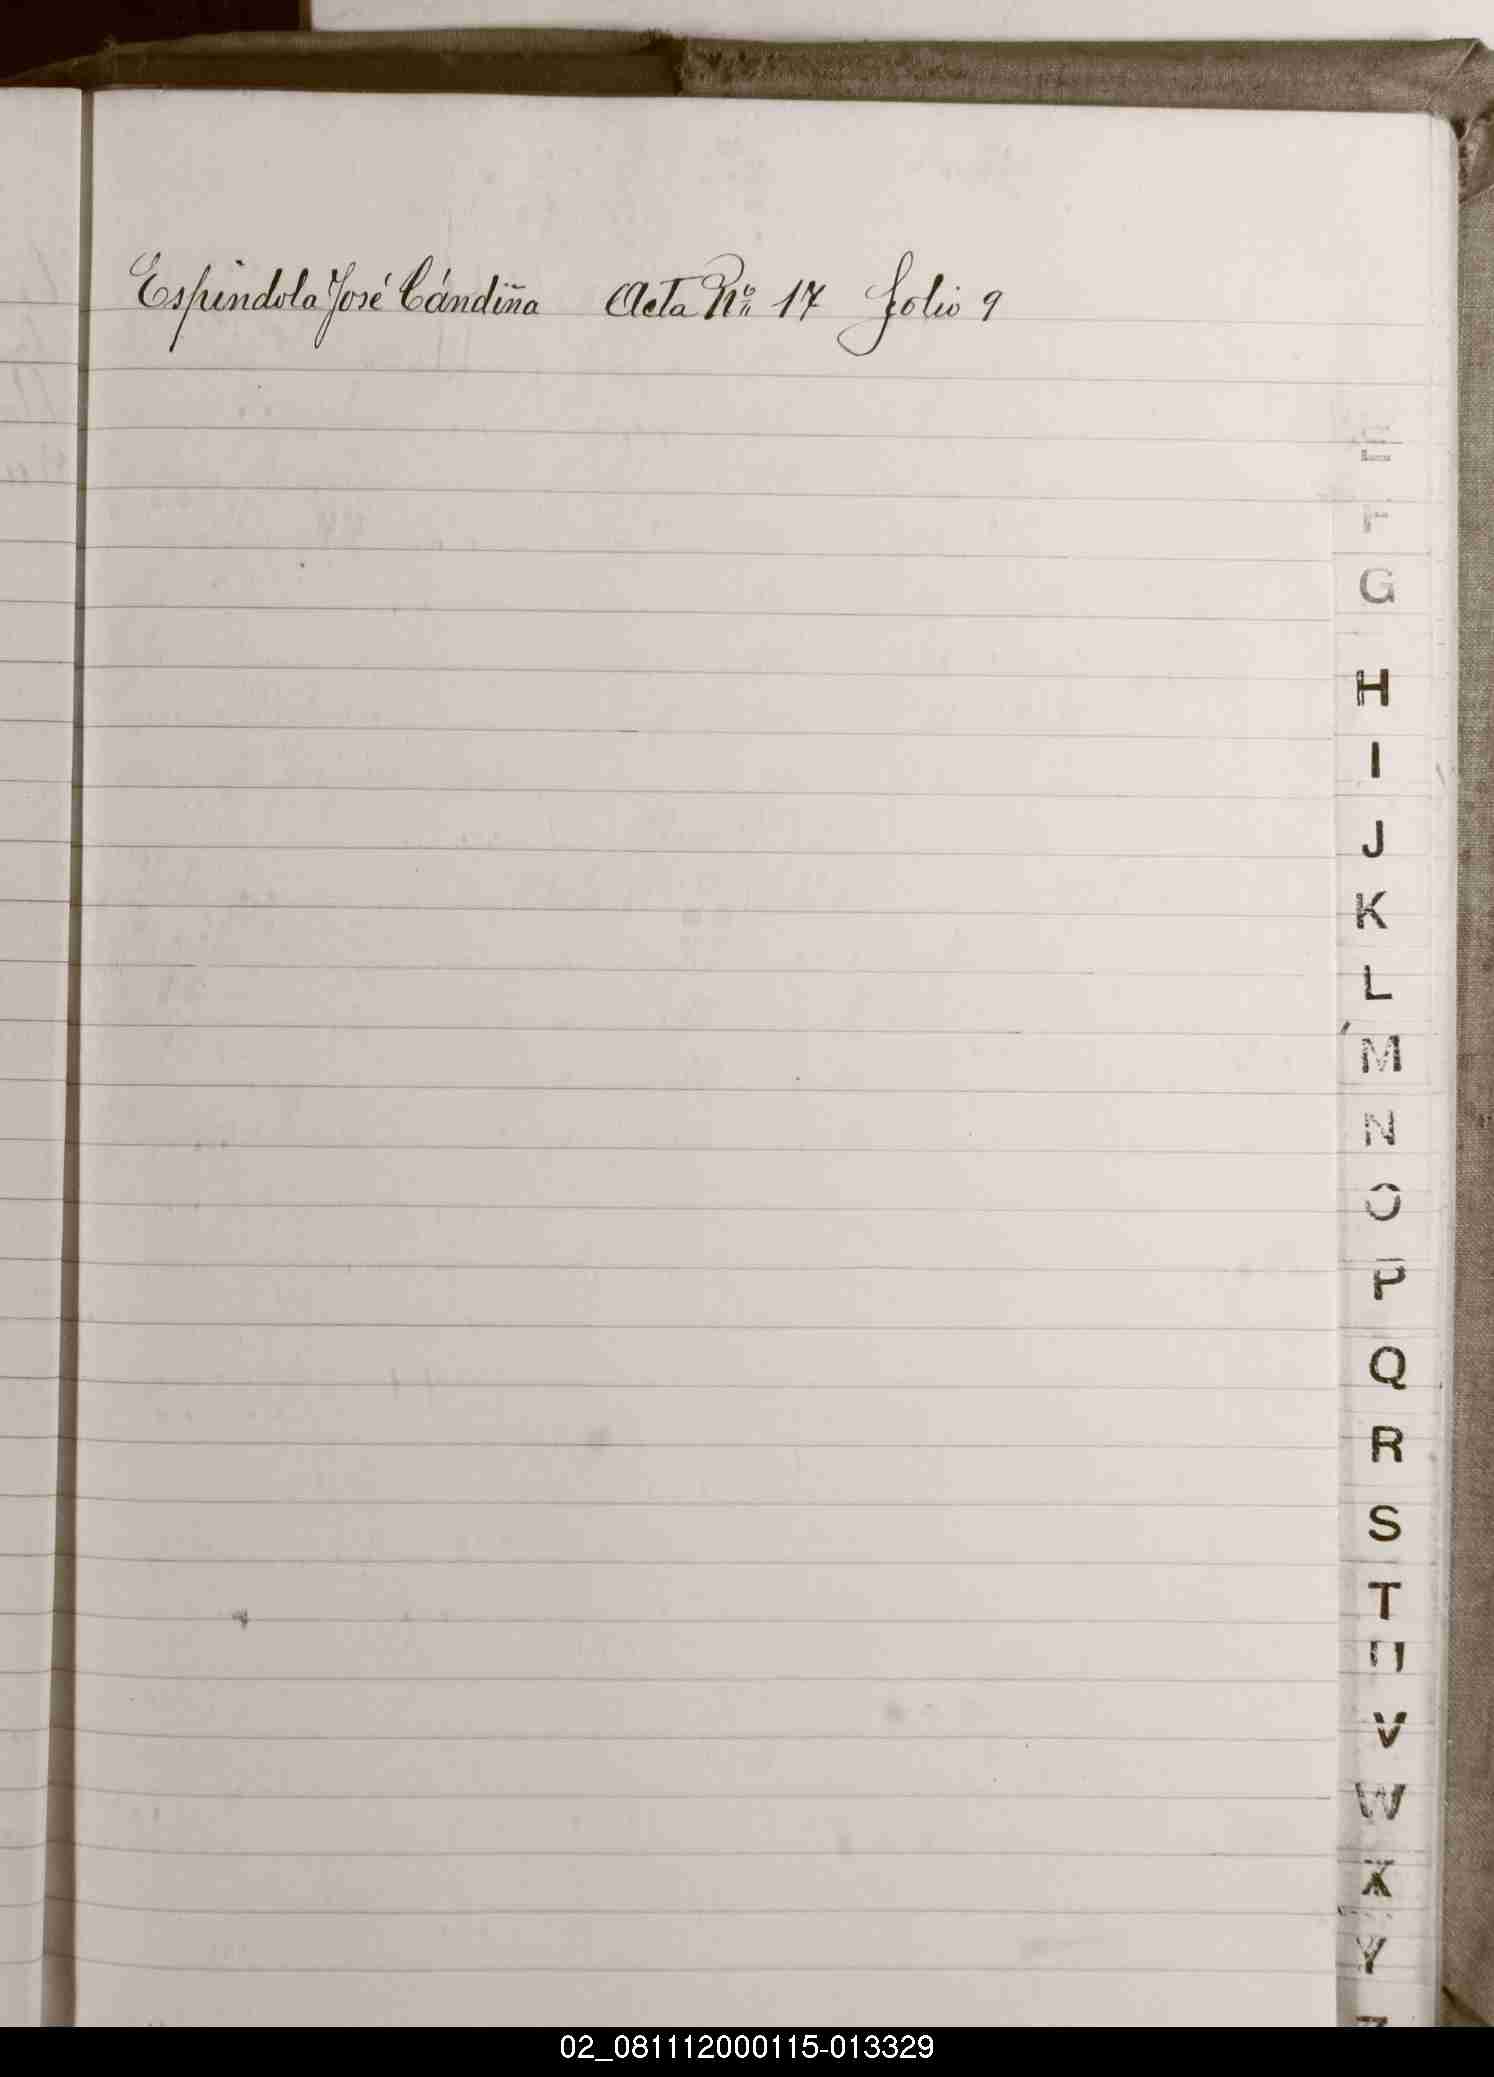 Espindola José Cándiña Acta Nº 17 folio 9
E
F
G
H
I
J
K
L
M
N
O
P
Q
R
S
T
U
V
W
X
Y
Z
02_081112000115-013329